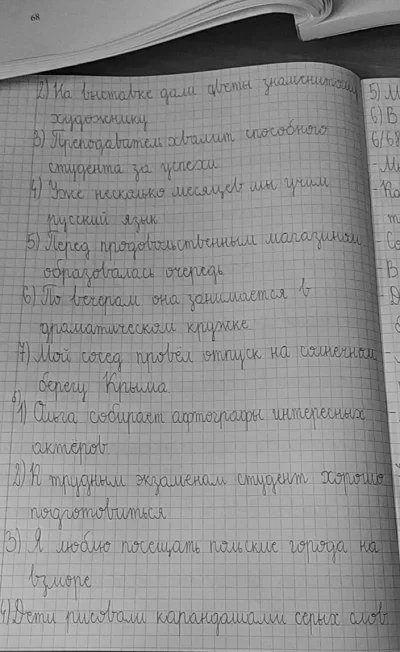 68
2) На выставке дали цветы знаменитому
художнику
3) Преподаватель хвалит способного
студента за успехи
4) Уже несколько месяцев мы учим
русский язык
5) Перед продовольственным магазином
образовалась очередь
6) По вечерам она занимается в
драматическом кружке
7) Мой сосед провёл отпуск на солнечном
берегу Крыма.
1) Ольга собирает афтографы интересных
актеров
2) К трудным экзаменам студент хорошо
подготовиться
3) Я люблю посещать польские города на
взморе
4) Дети рисовали карандашами серых слов
5)
6) В
6/68